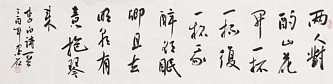 两人對
酌山花
开一杯
一杯復
一杯我
醉欲眠
卿且去
明朝有
意抱琴
来
李白詩